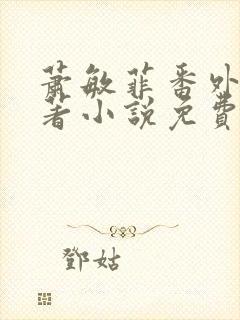 蕭敏菲番外
著小說免費
鄧姑